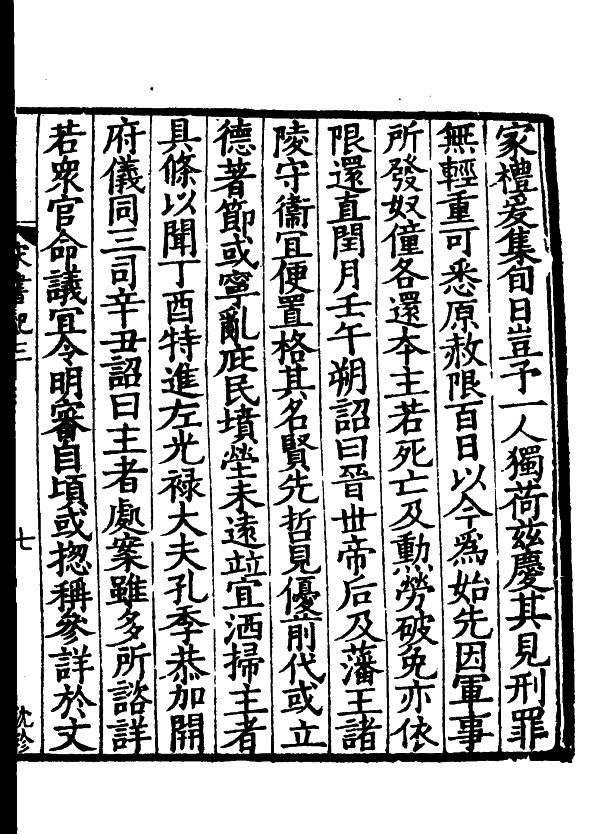 家禮爰集旬日豈予一人獨荷兹慶其見刑罪
無輕重可悉原赦限百日以今爲始先因軍事
所發奴僮各還本主若死亡及勲勞破免亦依
限還直閏月壬午朔詔曰晉丗帝后及藩王諸
陵守衞宜便置格其名賢先哲見優前代或立
德著節或寧亂庇民墳塋未遠竝宜洒掃主者
具條以聞丁酉特進左光禄大夫孔季恭加開
府儀同三司辛丑詔曰主者處案雖多所諮詳
若衆官命議宜令明審自頃或揔稱參詳於文
宋書紀三
七